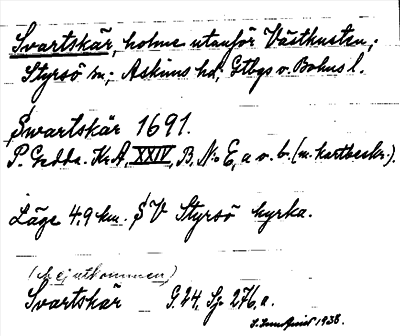 Svartskär, holme utanför Västkusten;
Styrsö sn; Askims hd; Gtbgs o. Bohus l.
Swartskär 1691.
P. Gedda. KrA, XXIV, B. No: E, a o. b. (m. kartbeskr.).
Läge 4,9 km. SV Styrsö kyrka.
(ej utkommen)
Svartskär G.24. Sjö 276, a.
1938.